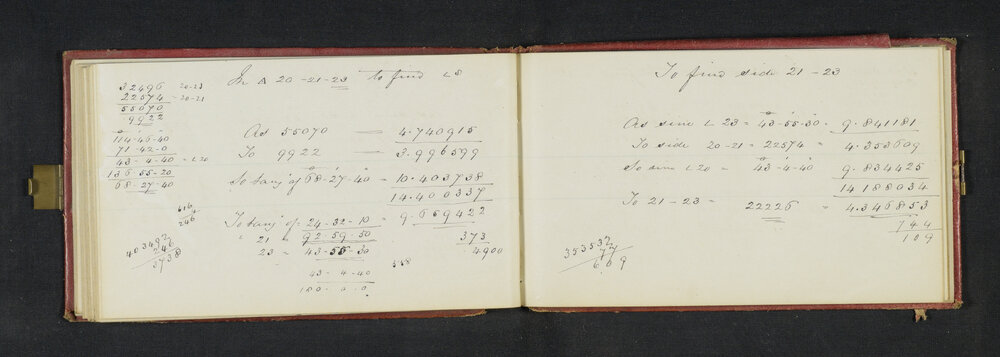 In Δ 20-21-23 to find LS
32496 20-23
22574 20-21
55070
9922
114-46-40
71-42-0
43-4-40 = L20
136 55-20
68-27-40
As 55070 — 4.740915
To 9922 — 3.996599
So tang of 68-27-40 = 10.403738
14.400337
To tang of 24-32-10 = 9.659422
21 = 92-59-50 373
23 = 43-55-30 4900
43-4-40
180-0-0
616
4
246
403492
246
3738
To find side 21-23
As sine L 23 = 43-55-30 = 9.841181
To side 20-21 = 22574 = 4.353609
So sine L20 = 43-4-40 = 9.834425
14 188034
To 21-23 = 22226 = 4.346853
744
109
353532
77
609